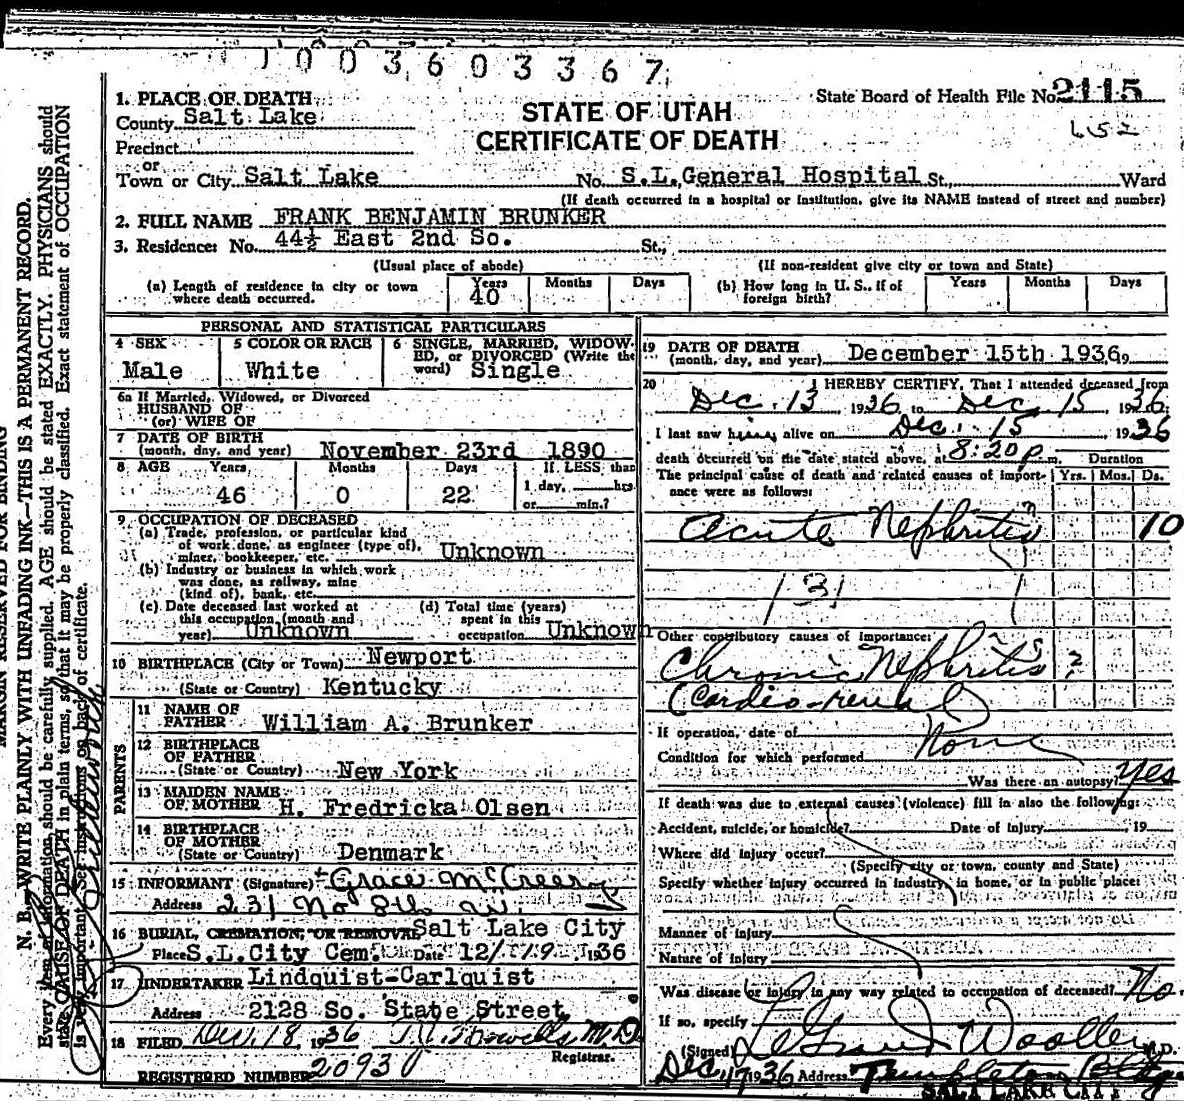 1003603367
STATE OF UTAH
CERTIFICATE OF DEATH
State Board of Health File No. 2115
652
1. PLACE OF DEATH
County Salt Lake
Precinct
or
Town or City Salt Lake No. S.L. General Hospital St., Ward
(If death occurred in a hospital or institution, give its NAME instead of street and number)
2. FULL NAME FRANK BENJAMIN BRUNKER
3. Residence: No. 44½ East 2nd So. St.,
(Usual place of abode) (If non-resident give city or town and State)
(a) Length of residence in city or town where death occurred. Years 40 Months Days
(b) How long in U. S., if of foreign birth? Years Months Days
PERSONAL AND STATISTICAL PARTICULARS
4 SEX Male
5 COLOR OR RACE White
6 SINGLE, MARRIED, WIDOWED, or DIVORCED (Write the word) Single
6a If Married, Widowed, or Divorced
HUSBAND OF
(or) WIFE OF
7 DATE OF BIRTH
(month, day, and year) November 23rd 1890
8 AGE Years Months Days If LESS than
46 0 22 1 day, hrs
or min.?
9 OCCUPATION OF DECEASED
(a) Trade, profession, or particular kind
of work done, as engineer (type of),
miner, bookkeeper, etc. Unknown
(b) Industry or business in which work
was done, as railway, mine
(kind of), bank, etc.
(c) Date deceased last worked at
this occupation (month and
year) Unknown
(d) Total time (years)
spent in this
occupation Unknown
10 BIRTHPLACE (City or Town) Newport
(State or Country) Kentucky
PARENTS
11 NAME OF
FATHER William A. Brunker
12 BIRTHPLACE
OF FATHER
(State or Country) New York
13 MAIDEN NAME
OF MOTHER H. Fredricka Olsen
14 BIRTHPLACE
OF MOTHER
(State or Country) Denmark
15 INFORMANT (Signature) Grace McCreery
Address 231 No 8th W.
16 BURIAL, CREMATION, OR REMOVAL Salt Lake City
Place S.L. City Cem. Date 12/19 1936
17 UNDERTAKER Lindquist-Carlquist
Address 2128 So. State Street
18 FILED Dec. 18, 1936 M.D.
Registrar.
REGISTERED NUMBER 2093
19 DATE OF DEATH
(month, day, and year) December 15th 1936,
20 I HEREBY CERTIFY, That I attended deceased from
Dec. 13 1936, to Dec. 15, 1936.
I last saw him alive on Dec. 15, 1936
death occurred on the date stated above, at 8:20 p m. Duration
The principal cause of death and related causes of importance were as follows: Yrs. Mos. Ds.
Acute Nephritis 10
131
Other contributory causes of importance:
Chronic Nephritis ?
(Cardio-renal)
If operation, date of None
Condition for which performed
Was there an autopsy? Yes
If death was due to external causes (violence) fill in also the following:
Accident, suicide, or homicide? Date of injury, 19
Where did injury occur?
(Specify city or town, county and State)
Specify whether injury occurred in industry, in home, or in public place:
Manner of injury
Nature of injury
Was disease or injury in any way related to occupation of deceased? No.
If so, specify
(Signed) LeGrand Woolley M.D.
Dec. 17 1936 Address Templeton Bldg
SALT LAKE CITY
MARGIN RESERVED FOR BINDING
N. B.—WRITE PLAINLY WITH UNFADING INK—THIS IS A PERMANENT RECORD.
Every item of information should be carefully supplied. AGE should be stated EXACTLY. PHYSICIANS should
state CAUSE OF DEATH in plain terms, so that it may be properly classified. Exact statement of OCCUPATION
is very important. See instructions on back of certificate.